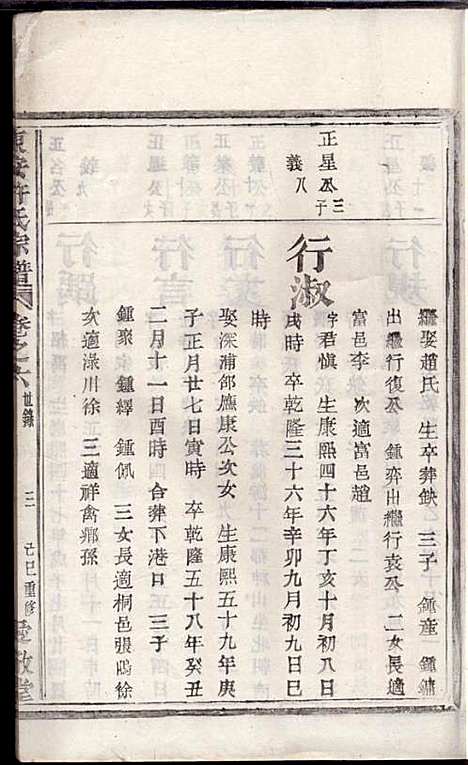 正星公三子
義八
繼娶趙氏 生卒葬缺 三子 鍾産 鍾鏞
出繼行復公 鍾弈出繼行袁公 二女長適
富邑李 次適富邑趙
行淑
字君愼 生康熙四十六年丁亥十月初八日
戌時 卒乾隆三十六年辛卯九月初九日巳
時
娶深浦邵應康公次女 生康熙五十九年庚
子正月廿七日寅時 卒乾隆五十八年癸丑
二月十一日酉時 合葬下港口 三子
鍾聚 鍾繹 鍾佩 三女長適桐邑張鳴徐
次適淥川徐 三適祥禽鄉孫
東安許氏宗譜 卷之六 世錄 三 己巳重修 堂